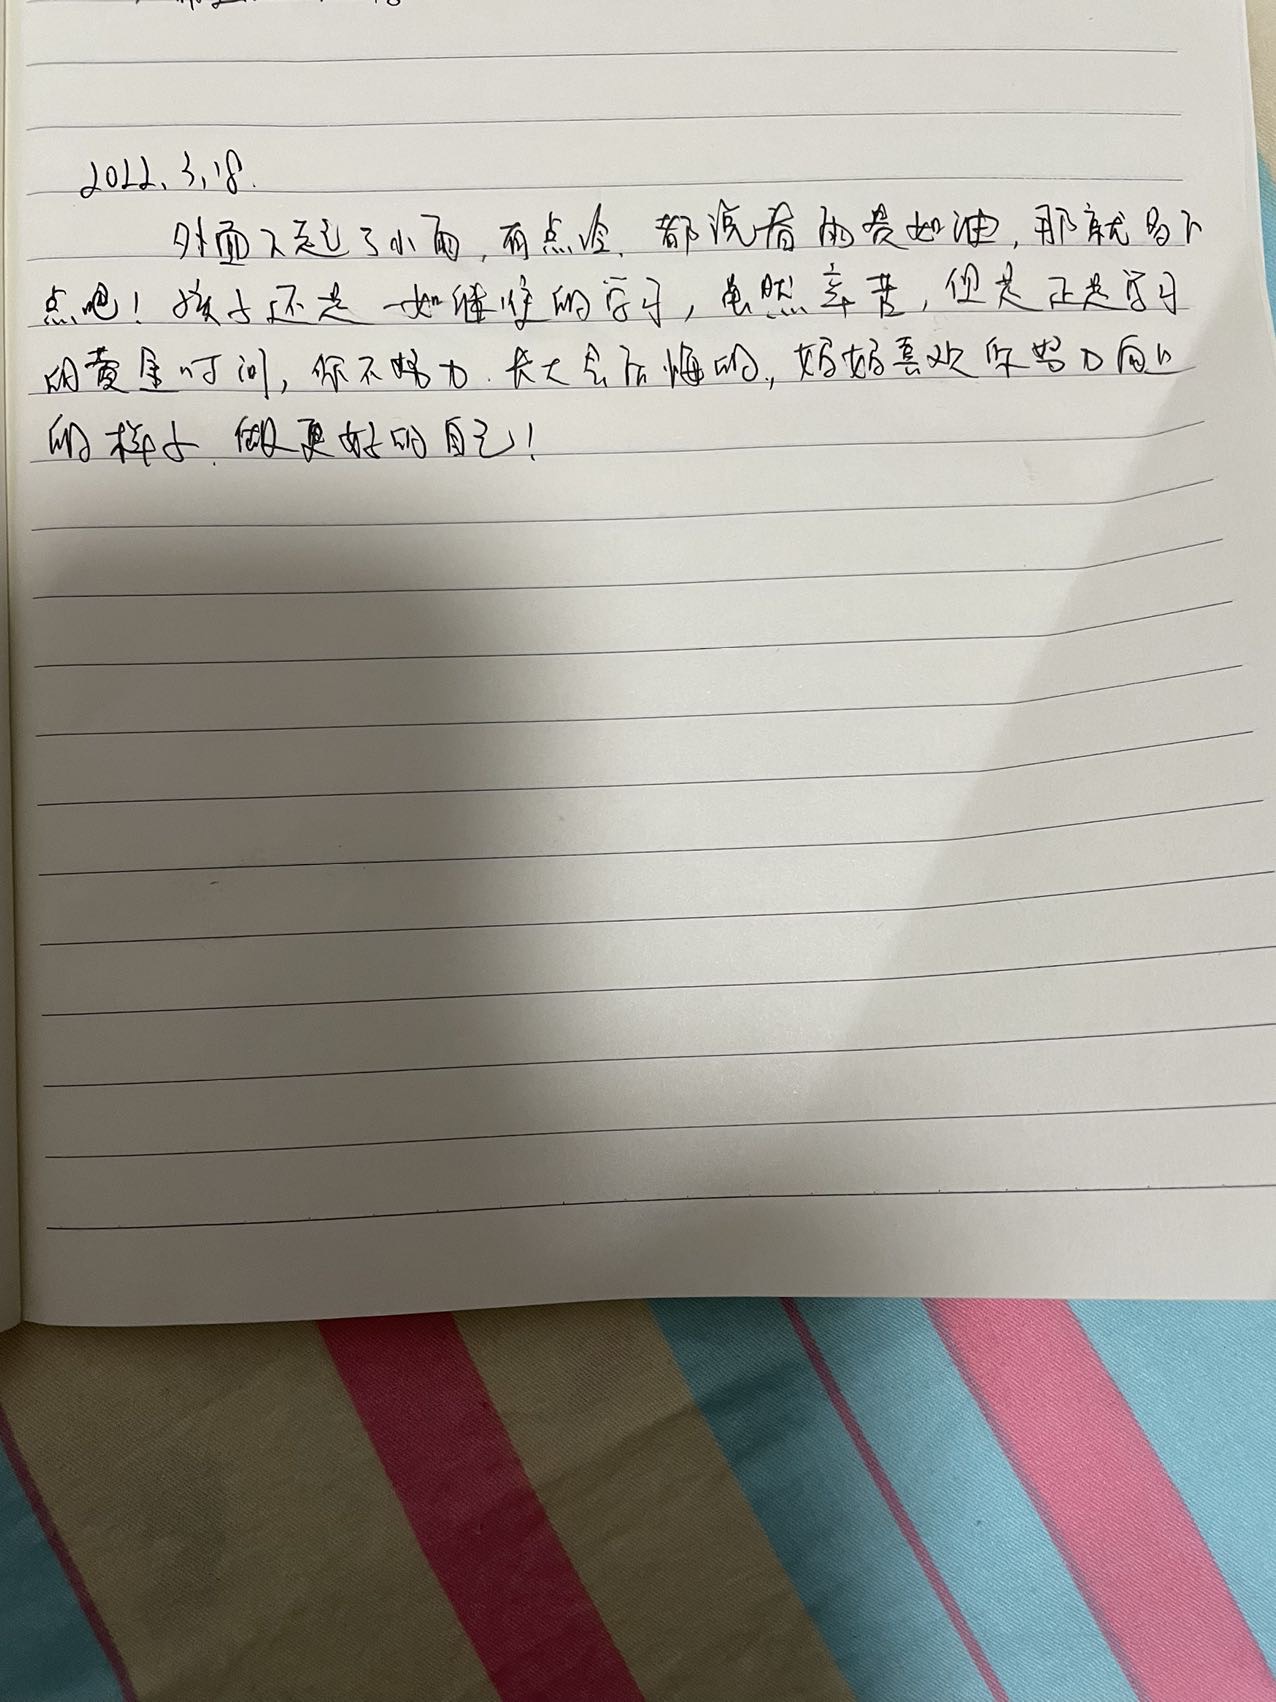 2022.3.18.
外面下起了小雨,有点冷.都说春雨贵如油,那就多下
点吧!孩子还是一如继往的学习,虽然辛苦,但是正是学习
的黄金时间,你不努力.长大会后悔的,妈妈喜欢你努力向上
的样子.做更好的自己!